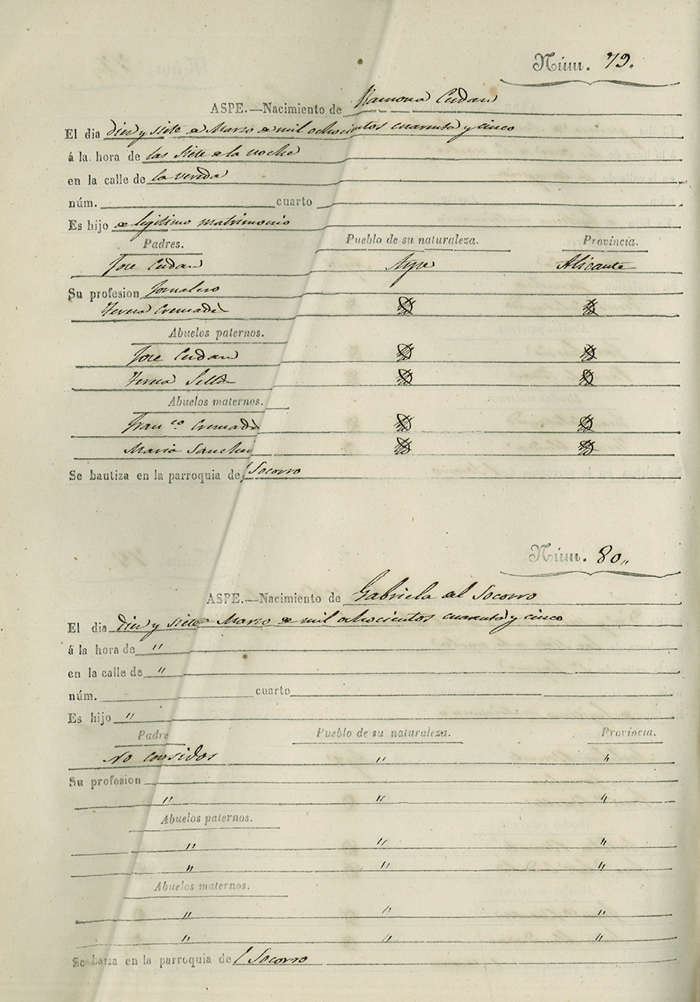 Núm. 79.
ASPE.—Nacimiento de Ramona Cerdan
El dia diez y siete de Marzo de mil ochocientos cuarenta y cinco
á la hora de las siete de la noche
en la calle de la vereda
núm. cuarto
Es hijo de legitimo matrimonio
Padres. Pueblo de su naturaleza. Provincia.
Jose Cerdan Aspe Alicante
Su profesion Jornalero
Teresa Cremades
Abuelos paternos.
Jose Cerdan
Teresa
Abuelos maternos.
Franco Cremades
Maria Sanchez
Se bautiza en la parroquia del Socorro
Núm. 80,,
ASPE.—Nacimiento de Gabriela del Socorro
El dia diez y siete Marzo de mil ochocientos cuarenta y cinco
á la hora de "
en la calle de "
núm. cuarto
Es hijo "
Padre Pueblo de su naturaleza. Provincia.
No considos " "
Su profesion
" " "
Abuelos paternos.
" " "
" " "
Abuelos maternos.
" " "
" " "
Se batza en la parroquia del Socorro